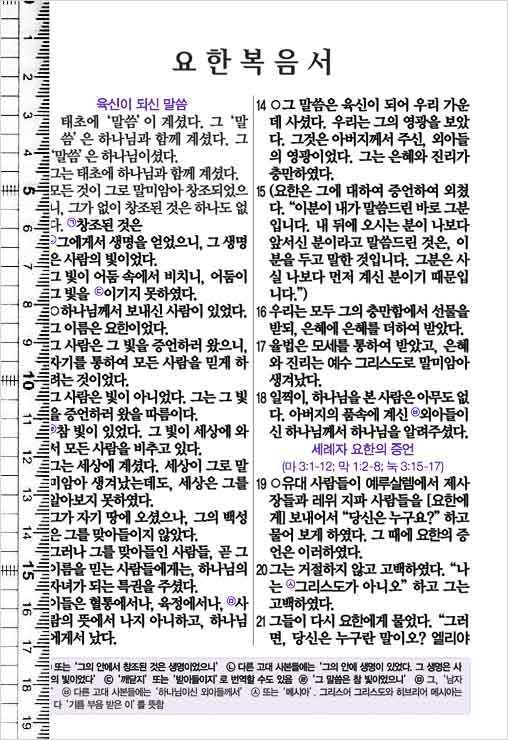 요한복음서
육신이 되신 말씀
태초에 '말씀'이 계셨다. 그 '말
씀'은 하나님과 함께 계셨다. 그
'말씀'은 하나님이셨다.
그는 태초에 하나님과 함께 계셨다.
모든 것이 그로 말미암아 창조되었으
니, 그가 없이 창조된 것은 하나도 없
다. ㉠창조된 것은
㉡그에게서 생명을 얻었으니, 그 생명
은 사람의 빛이었다.
그 빛이 어둠 속에서 비치니, 어둠이
그 빛을 ㉢이기지 못하였다.
○하나님께서 보내신 사람이 있었다.
그 이름은 요한이었다.
그 사람은 그 빛을 증언하러 왔으니,
자기를 통하여 모든 사람을 믿게 하
려는 것이었다.
그 사람은 빛이 아니었다. 그는 그 빛
을 증언하러 왔을 따름이다.
참 빛이 있었다. 그 빛이 세상에 와
서 모든 사람을 비추고 있다.
그는 세상에 계셨다. 세상이 그로 말
미암아 생겨났는데도, 세상은 그를
알아보지 못하였다.
그가 자기 땅에 오셨으나, 그의 백성
은 그를 맞아들이지 않았다.
그러나 그를 맞아들인 사람들, 곧 그
이름을 믿는 사람들에게는, 하나님의
자녀가 되는 특권을 주셨다.
이들은 혈통에서나, 육정에서나, ㉤사
람의 뜻에서 나지 아니하고, 하나님
에게서 났다.
14 ○그 말씀은 육신이 되어 우리 가운
데 사셨다. 우리는 그의 영광을 보았
다. 그것은 아버지께서 주신, 외아들
의 영광이었다. 그는 은혜와 진리가
충만하였다.
15 (요한은 그에 대하여 증언하여 외쳤
다. "이분이 내가 말씀드린 바로 그분
입니다. 내 뒤에 오시는 분이 나보다
앞서신 분이라고 말씀드린 것은, 이
분을 두고 말한 것입니다. 그분은 사
실 나보다 먼저 계신 분이기 때문입
니다.")
16 우리는 모두 그의 충만함에서 선물을
받되, 은혜에 은혜를 더하여 받았다.
17 율법은 모세를 통하여 받았고, 은혜
와 진리는 예수 그리스도로 말미암아
생겨났다.
18 일찍이, 하나님을 본 사람은 아무도 없
다. 아버지의 품속에 계신 ㉥외아들이
신 하나님께서 하나님을 알려주셨다.
세례자 요한의 증언
(마 3:1-12; 막 1:2-8; 눅 3:15-17)
19 ○유대 사람들이 예루살렘에서 제사
장들과 레위 지파 사람들을 [요한에
게] 보내어서 "당신은 누구요?" 하고
물어 보게 하였다. 그 때에 요한의 증
언은 이러하였다.
20 그는 거절하지 않고 고백하였다. "나
는 ㉦그리스도가 아니오" 하고 그는
고백하였다.
21 그들이 다시 요한에게 물었다. "그러
면, 당신은 누구란 말이오? 엘리야
또는 '그의 안에서 창조된 것은 생명이었으니' ㉡ 다른 고대 사본들에는 '그의 안에 생명이 있었다. 그 생명은 사
의 빛이었다' ㉢ '깨닫지' 또는 '받아들이지'로 번역할 수도 있음 ㉣ '그 말씀은 참 빛이었으니' ㉤ 그, '남자
' ㉥ 다른 고대 사본들에는 '하나님이신 외아들께서' ㉦ 또는 '메시아'. 그리스어 그리스도와 히브리어 메시아는
다 '기름 부음 받은 이'를 뜻함
0
1
2
3
4
5
6
7
8
9
10
11
12
13
14
15
16
17
18
19